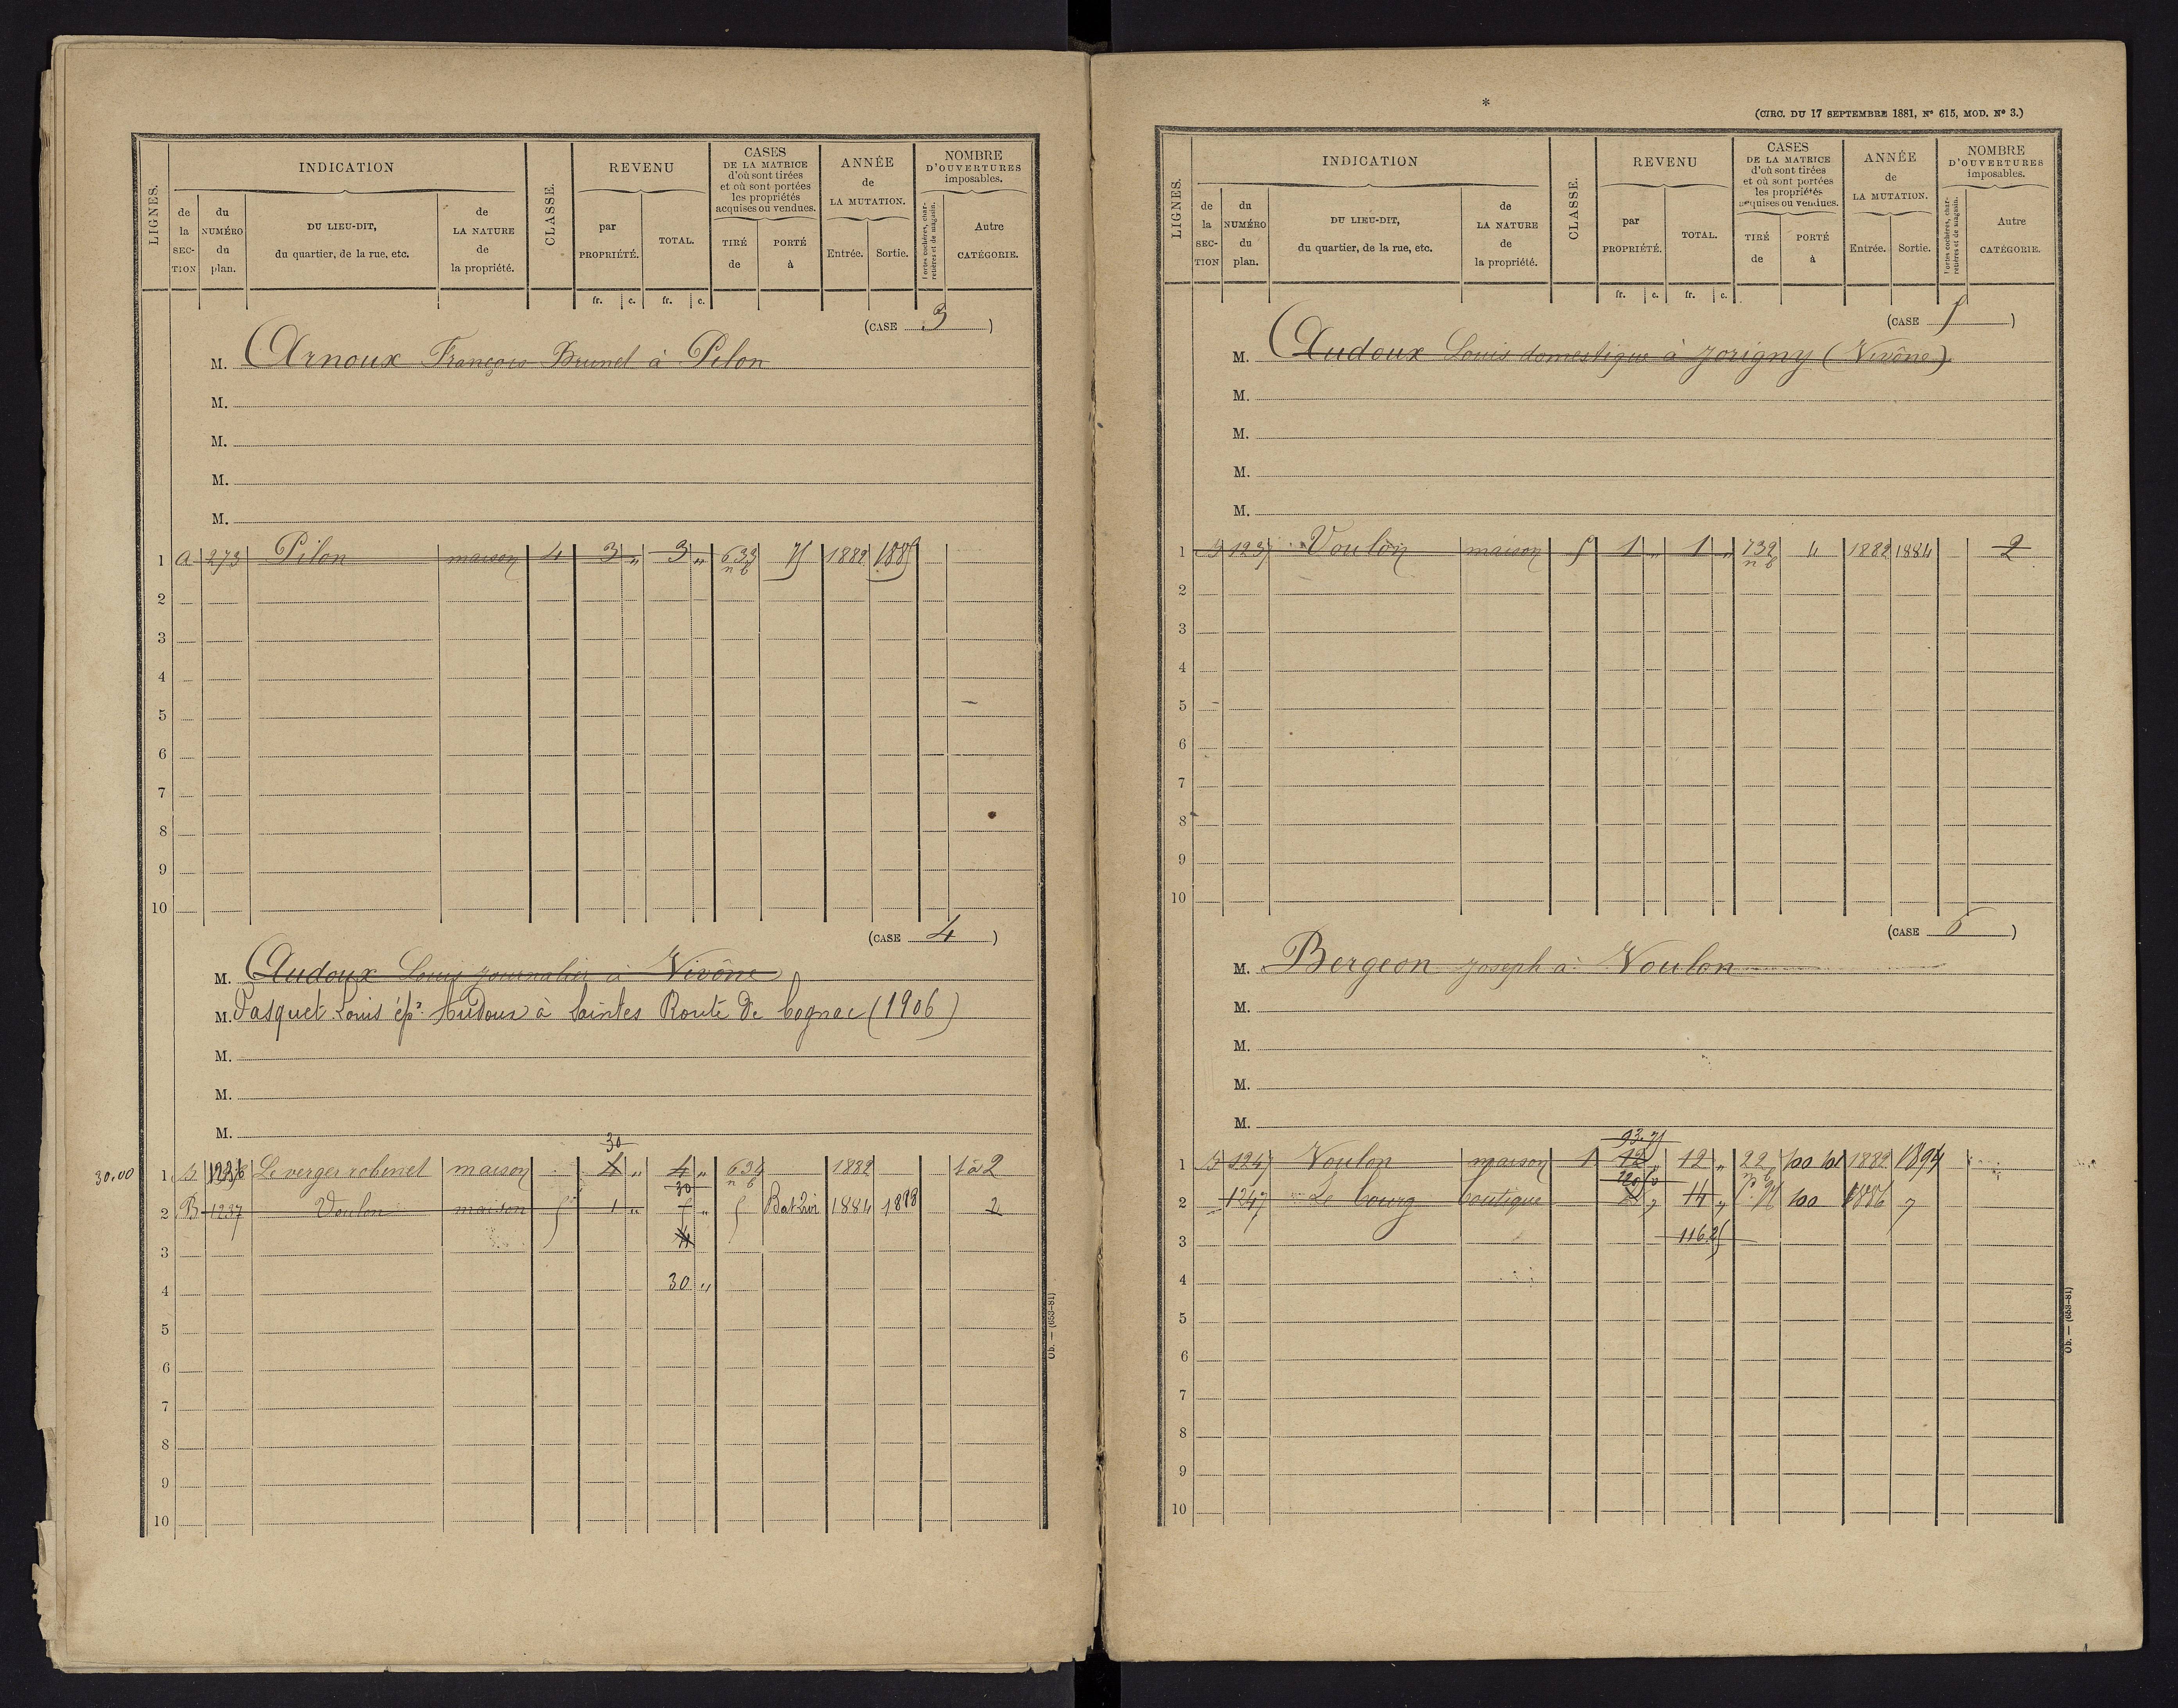 LIGNES.
INDICATION
CLASSE.
REVENU
CASES
DE LA MATRICE
d'où sont tirées
et où sont portées
les propriétés
acquises ou vendues.
ANNÉE
de
LA MUTATION.
NOMBRE
D'OUVERTURES
imposables.
de la SECTION
du NUMÉRO du plan.
DU LIEU-DIT,
du quartier, de la rue, etc.
de LA NATURE de la propriété.
par PROPRIÉTÉ.
TOTAL.
TIRÉ de
PORTÉ à
Entrée.
Sortie.
Portes cochères, charretières et de magasin.
Autre CATÉGORIE.
fr. c. fr. c.
(CASE 3)
M. Arnoux François Brunet à Pilon
M.
M.
M.
M.
1 A 273 Pilon maison 4 3 " 3 " 1882
2
3
4
5
6
7
8
9
10
(CASE 4)
M. Audoux Louis journalier à Vivône
M. Pasquet Louis ép. Audoux à Saintes Route de Cognac (1906)
M.
M.
M.
30
30.00 1 B Le verger robinet maison 4 " 4 " 1882 1 à 2
30
2 B 1237 Voulon maison 5 1 " 5 " 5 1884 1888 2
3
4 30 "
5
6
7
8
9
10
Ob. — (653-81)
*
(CIRC. DU 17 SEPTEMBRE 1881, N° 615, MOD. N° 3.)
LIGNES.
INDICATION
CLASSE.
REVENU
CASES
DE LA MATRICE
d'où sont tirées
et où sont portées
les propriétés
acquises ou vendues.
ANNÉE
de
LA MUTATION.
NOMBRE
D'OUVERTURES
imposables.
de la SECTION
du NUMÉRO du plan.
DU LIEU-DIT,
du quartier, de la rue, etc.
de LA NATURE de la propriété.
par PROPRIÉTÉ.
TOTAL.
TIRÉ de
PORTÉ à
Entrée.
Sortie.
Portes cochères, charretières et de magasin.
Autre CATÉGORIE.
fr. c. fr. c.
(CASE 5)
M. Audoux Louis domestique à Jorigny (Vivône)
M.
M.
M.
M.
1 B 1237 Voulon maison 5 1 " 1 " 132 4 1882 1884 2
2
3
4
5
6
7
8
9
10
(CASE 6)
M. Bergeon Joseph à Voulon
M.
M.
M.
M.
93.75
1 B 1247 Voulon maison 1 12 " 12 " 22 1882 1894
2 1247 Le bourg boutique 14 " 1886
3 116.25
4
5
6
7
8
9
10
Ob. — (653-81)